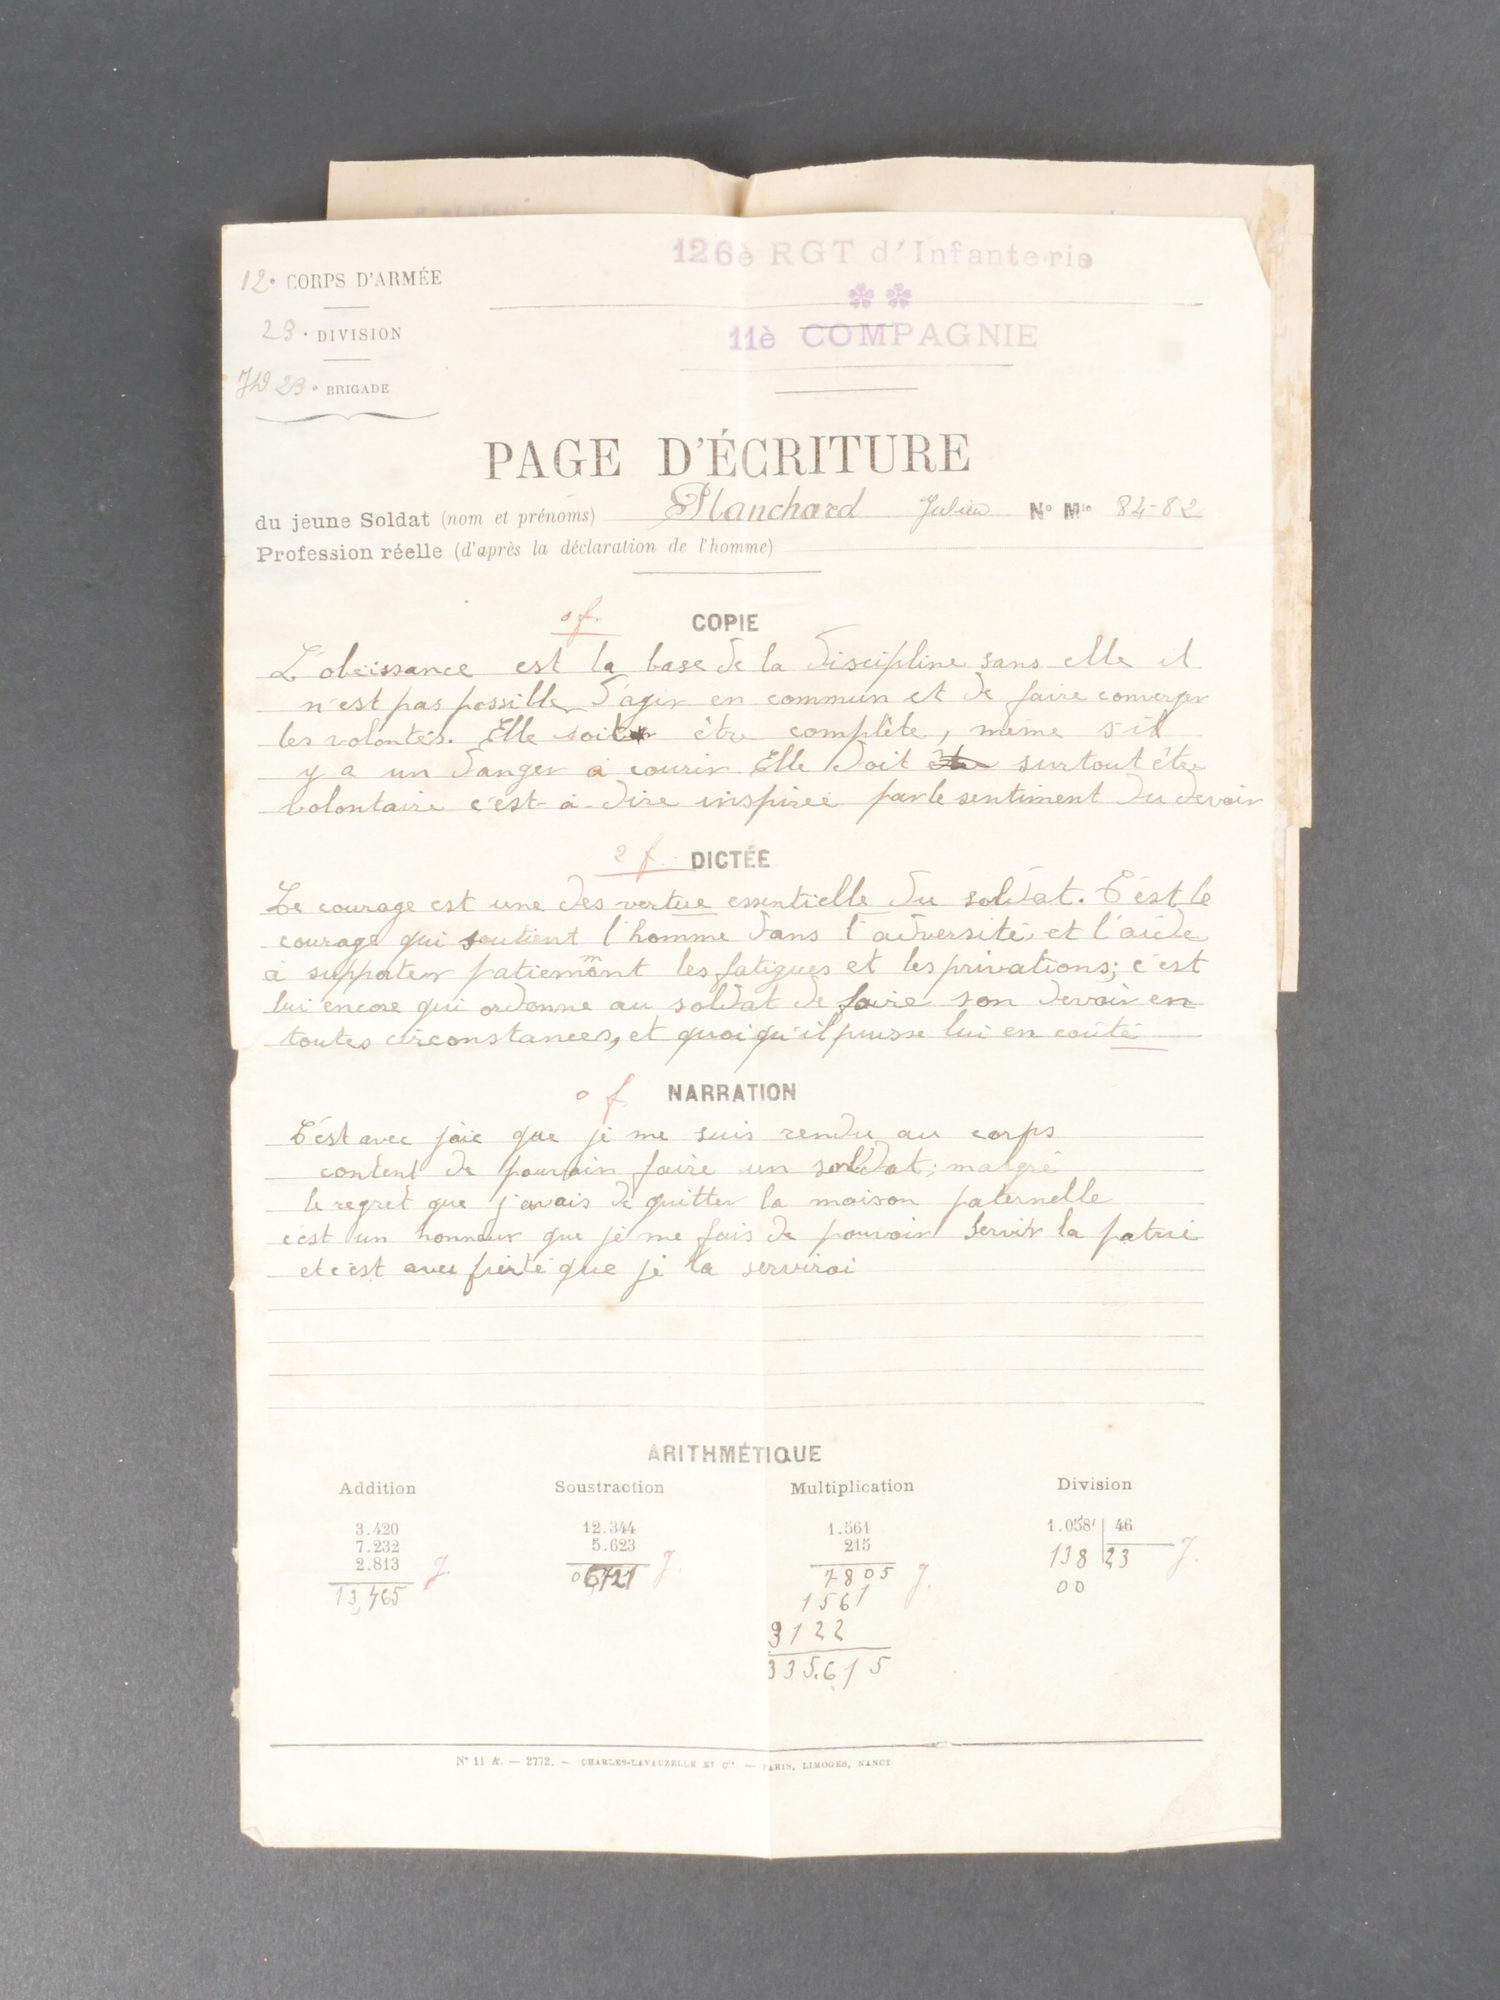 12e CORPS D'ARMÉE
23e DIVISION
23e BRIGADE
126è RGT d'Infanterie
11è COMPAGNIE
PAGE D'ÉCRITURE
du jeune Soldat (nom et prénoms) Planchard Julien No Mle 84-82
Profession réelle (d'après la déclaration de l'homme)
0 f. COPIE
L'obéissance est la base de la discipline sans elle il
n'est pas possible d'agir en commun et de faire converger
les volontés. Elle doit être complète, même s'il
y a un danger à courir Elle doit être surtout être
volontaire c'est-à-dire inspirée par le sentiment du devoir
2 f. DICTÉE
Le courage est une des vertue essentielle du soldat. C'est le
courage qui soutient l'homme dans l'adversité, et l'aide
à supporter patiemment les fatigues et les privations; c'est
lui encore qui ordonne au soldat de faire son devoir en
toutes circonstances, et quoiqu'il puisse lui en coûté
0 f. NARRATION
C'est avec joie que je me suis rendu au corps
content de pouvoir faire un soldat; malgré
le regret que j'avais de quitter la maison paternelle
c'est un honneur que je me fais de pouvoir servir la patrie
et c'est avec fierté que je la servirai
ARITHMÉTIQUE
Addition Soustraction Multiplication Division
3.420 12.344 1.561 1.058 46
7.232 5.623 215 138 23
2.813 06721 7805 00
13,465 1561
3122
335.615
N° 11 A. — 2772. — CHARLES-LAVAUZELLE ET Cie — PARIS, LIMOGES, NANCY